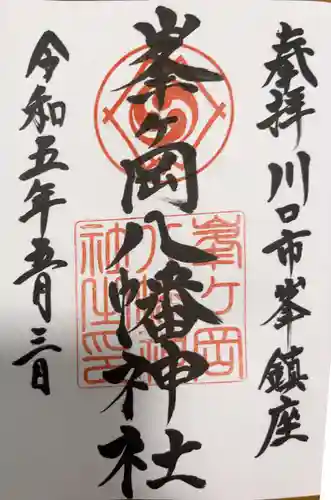 奉拝 川口市峯鎮座
峯ヶ岡八幡神社
峯ヶ岡八幡神社之印
令和五年五月三日